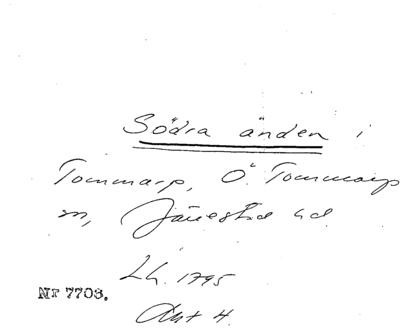 Södra änden i
Tommarp, Ö. Tommarp
sn, Järrestad hd
Lh. 1795
Akt 4.
Nr 7703.